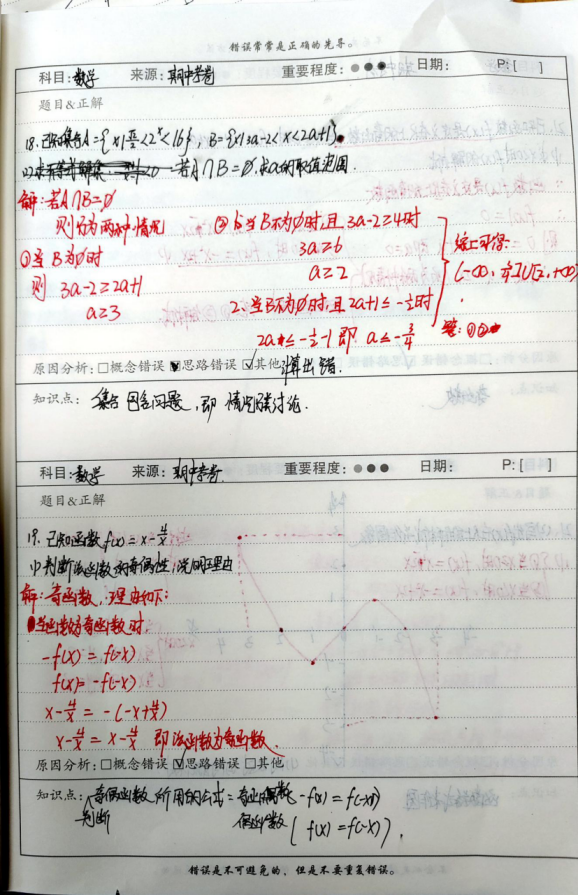 错误常常是正确的先导。
科目:数学 来源:期中考卷 重要程度: 日期: P:[ ]
题目&正解
18.已知集合A={x|<2^x<16}, B={x|3a-2<x<2a+1}.
若A∩B=∅,求a的取值范围.
解:若A∩B=∅
则分为两种情况
①当B为∅时
则 3a-2≥2a+1
a≥3
② 1,当B不为∅时,且3a-2≥4时
3a≥6
a≥2
2、当B不为∅时,且2a+1≤-½时
2a≤-½-1 即 a≤-¾
综上可得:
(-∞, ]∪[2,+∞)
原因分析:□概念错误 ☑思路错误 ☑其他 计算出错.
知识点: 集合包含问题,即情况讨论.
科目:数学 来源:期中考卷 重要程度: 日期: P:[ ]
题目&正解
19.已知函数f(x)=x-4/x
(1)判断该函数的奇偶性,说明理由
解:奇函数,理由如下:
当函数为奇函数时,
-f(x)=f(-x)
f(x)=-f(-x)
x-4/x=-(-x+4/x)
x-4/x=x-4/x 即该函数为奇函数.
原因分析:□概念错误 ☑思路错误 □其他
知识点: 判断奇偶函数所用的公式: 奇函数 -f(x)=f(-x)
偶函数(f(x)=f(-x)).
错误是不可避免的,但是不要重复错误。